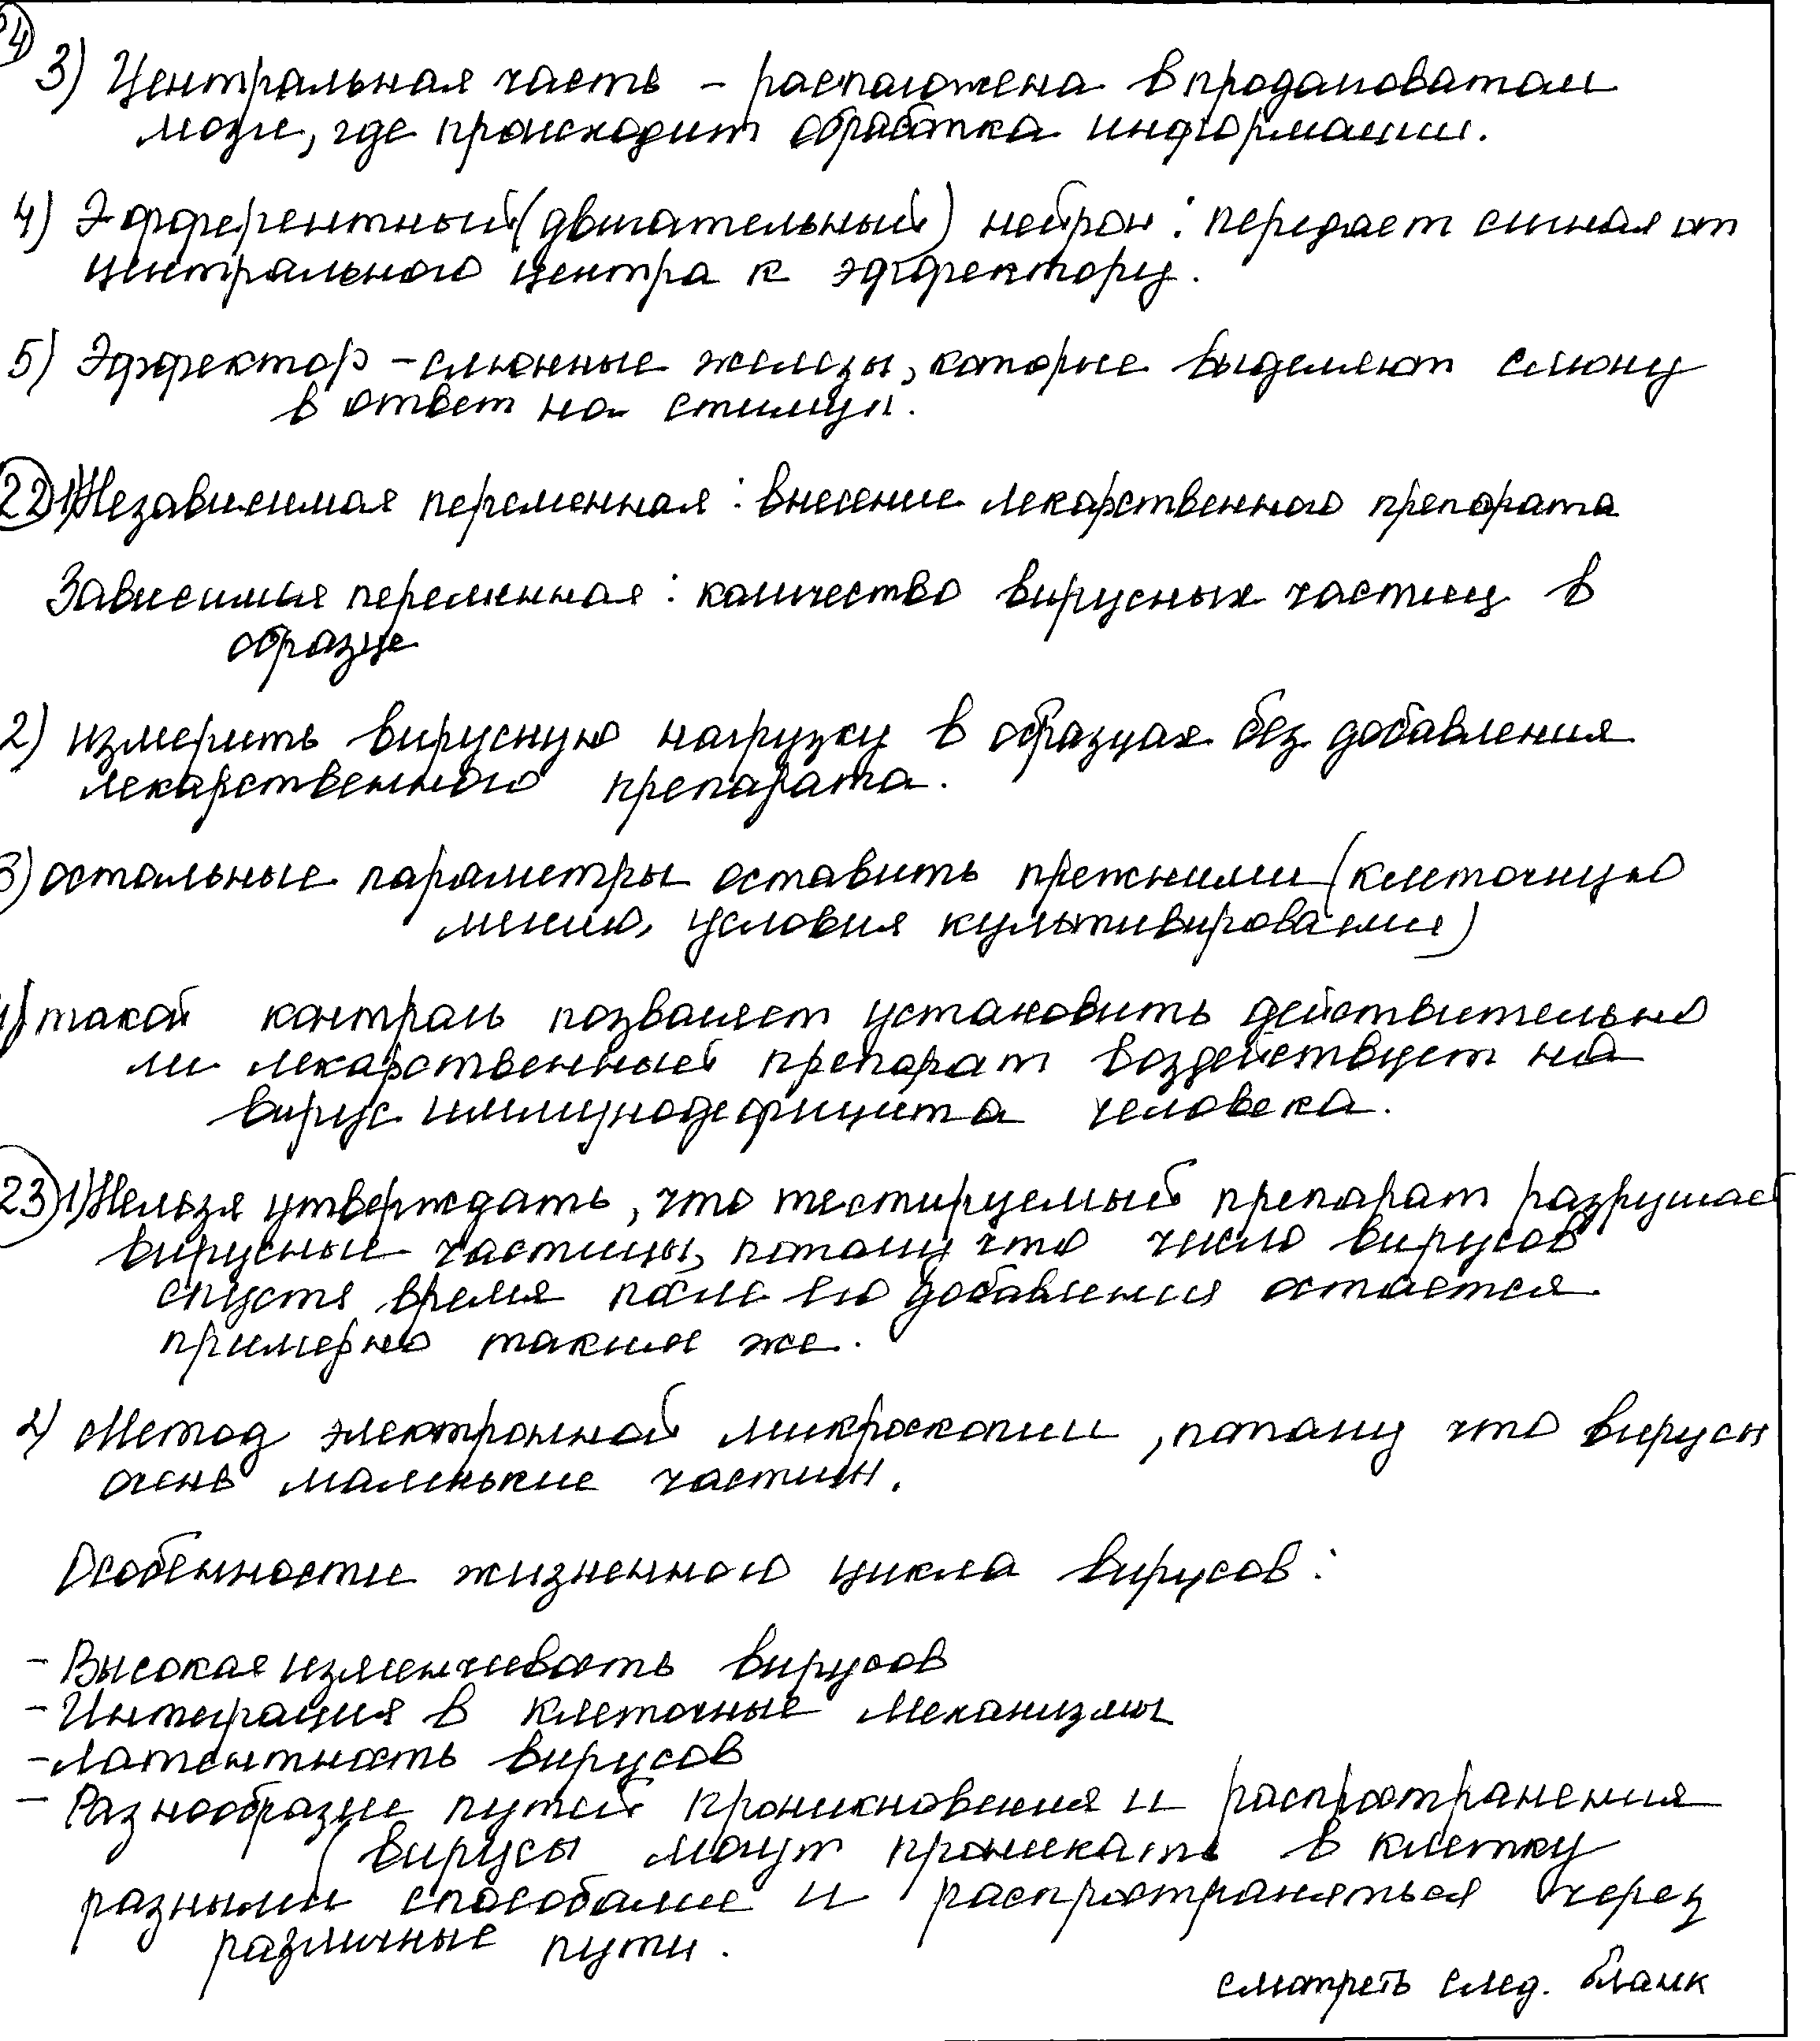 24
3) Центральная часть – расположена в продолговатом
мозге, где происходит обработка информации.
4) Эфферентный (двигательный) нейрон: передает сигнал от
центрального центра к эффектору.
5) Эффектор – слюнные железы, которые выделяют слюну
в ответ на стимул.
22 1) Независимая переменная: внесение лекарственного препарата
Зависимая переменная: количество вирусных частиц в
образце
2) измерить вирусную нагрузку в образцах без добавления
лекарственного препарата.
3) остальные параметры оставить прежними (клеточную
линию, условия культивирования)
4) такой контроль позволяет установить действительно
ли лекарственный препарат воздействует на
вирус иммунодефицита человека.
23 1) Нельзя утверждать, что тестируемый препарат разрушает
вирусные частицы, потому что число вирусов
спустя время после его добавления остается
примерно таким же.
2) Метод электронной микроскопии, потому что вирусы
очень маленькие частицы.
Особенности жизненного цикла вирусов:
- Высокая изменчивость вирусов
- Интеграция в клеточные механизмы
- Латентность вирусов
- Разнообразие путей проникновения и распространения
(вирусы могут проникать в клетку
разными способами и распространяться через
различные пути.
смотреть след. бланк